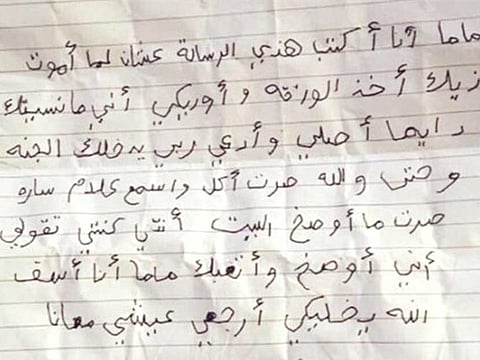 ماما أنا أكتب هذي الرسالة عشان لما أموت
زيك أخذ الورقه وأوريكي أني ما نسيتك
دايما أصلي وأدعي ربي يدخلك الجنه
وحتى والله صرت أكل واسمع كلام ساره
صرت ما أوصخ البيت أنتي كنتي تقولي
أني أوصخ وأتعبك ماما أنا أسف
الله يخليكي أرجعي عيشي معانا